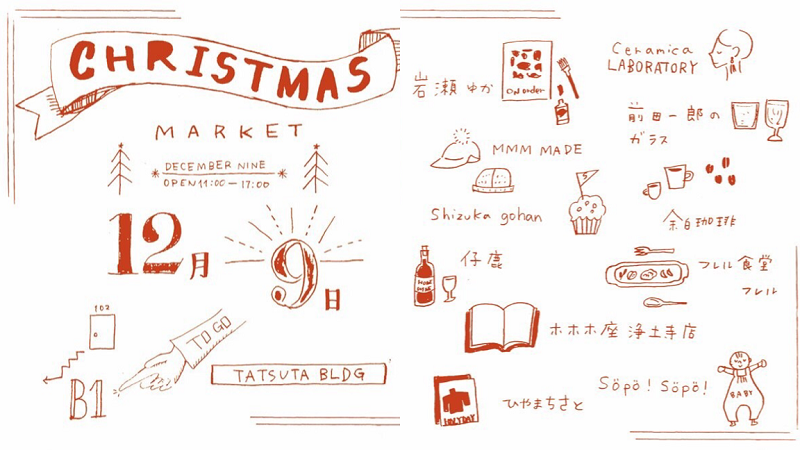 CHRISTMAS
MARKET
DECEMBER NINE
OPEN 11:00 — 17:00
12月
9日
102
TO GO
B1
TATSUTA BLDG
岩瀬ゆか
On order
Ceramica
LABORATORY
前田一郎の
ガラス
MMM MADE
Shizuka gohan
余白珈琲
仔鹿
フレル食堂
フレル
ホホホ座 浄土寺店
ひやまちさと
Söpö! Söpö!
BABY